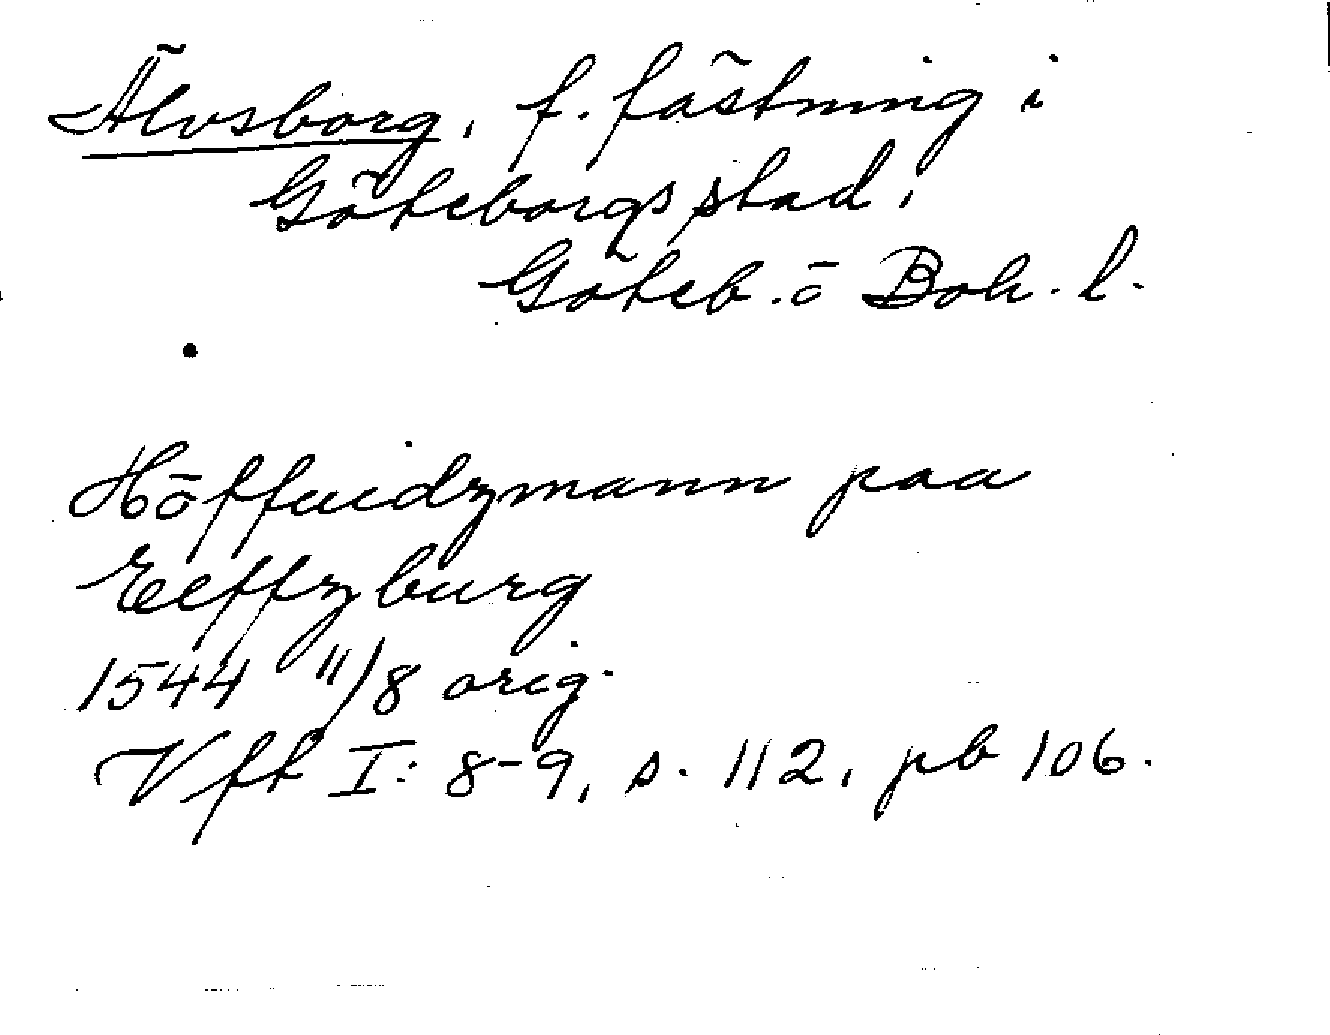 Älvsborg, f. fästning i
Göteborgs stad,
Göteb. o Boh. l.
Höffuidzmann paa
Eelffzburg
1544 11/8 orig.
Vfk I: 8-9, s. 112, pb 106.